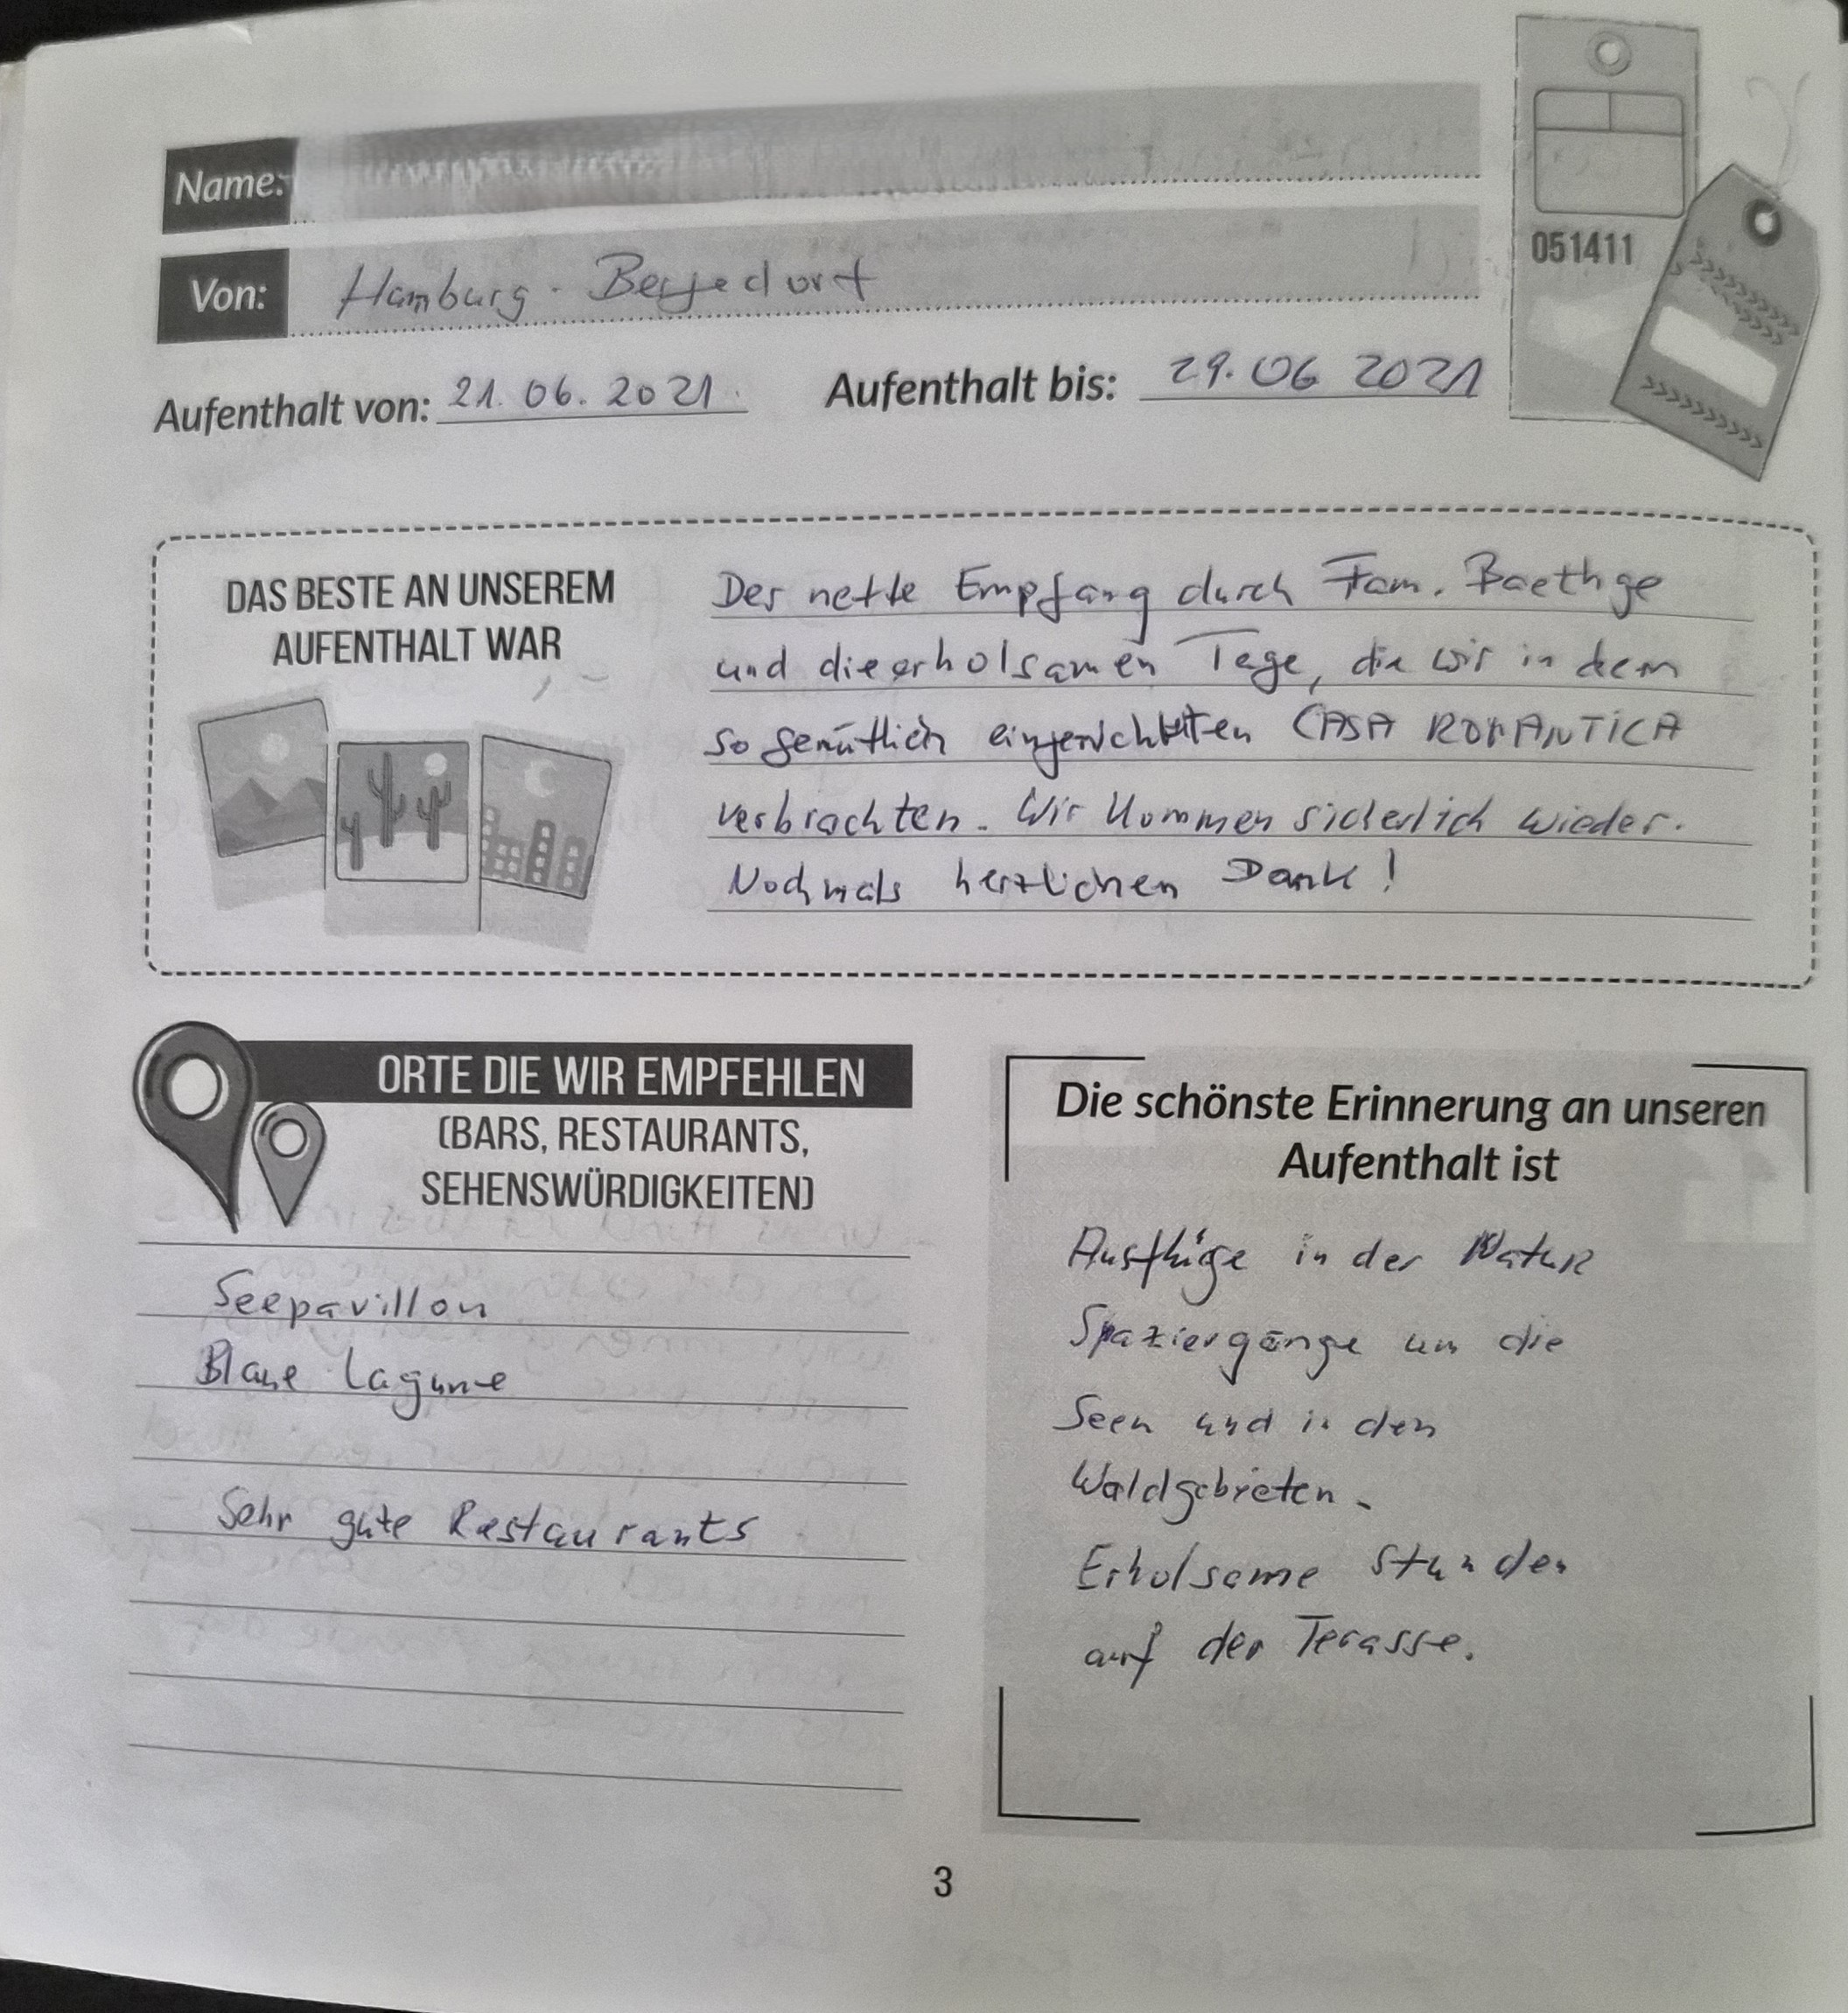 Name:
Von: Hamburg - Bergedorf
Aufenthalt von: 21.06.2021. Aufenthalt bis: 29.06 2021
051411
DAS BESTE AN UNSEREM
AUFENTHALT WAR
Der nette Empfang durch Fam. Baethge
und die erholsamen Tage, die wir in dem
so gemütlich eingerichteten CASA ROMANTICA
verbrachten. Wir kommen sicherlich wieder.
Nochmals herzlichen Dank!
ORTE DIE WIR EMPFEHLEN
(BARS, RESTAURANTS,
SEHENSWÜRDIGKEITEN)
Seepavillon
Blaue Lagune
Sehr gute Restaurants
Die schönste Erinnerung an unseren
Aufenthalt ist
Ausflüge in der Natur
Spaziergänge um die
Seen und in den
Waldgebieten.
Erholsame Stunden
auf der Terasse.
3